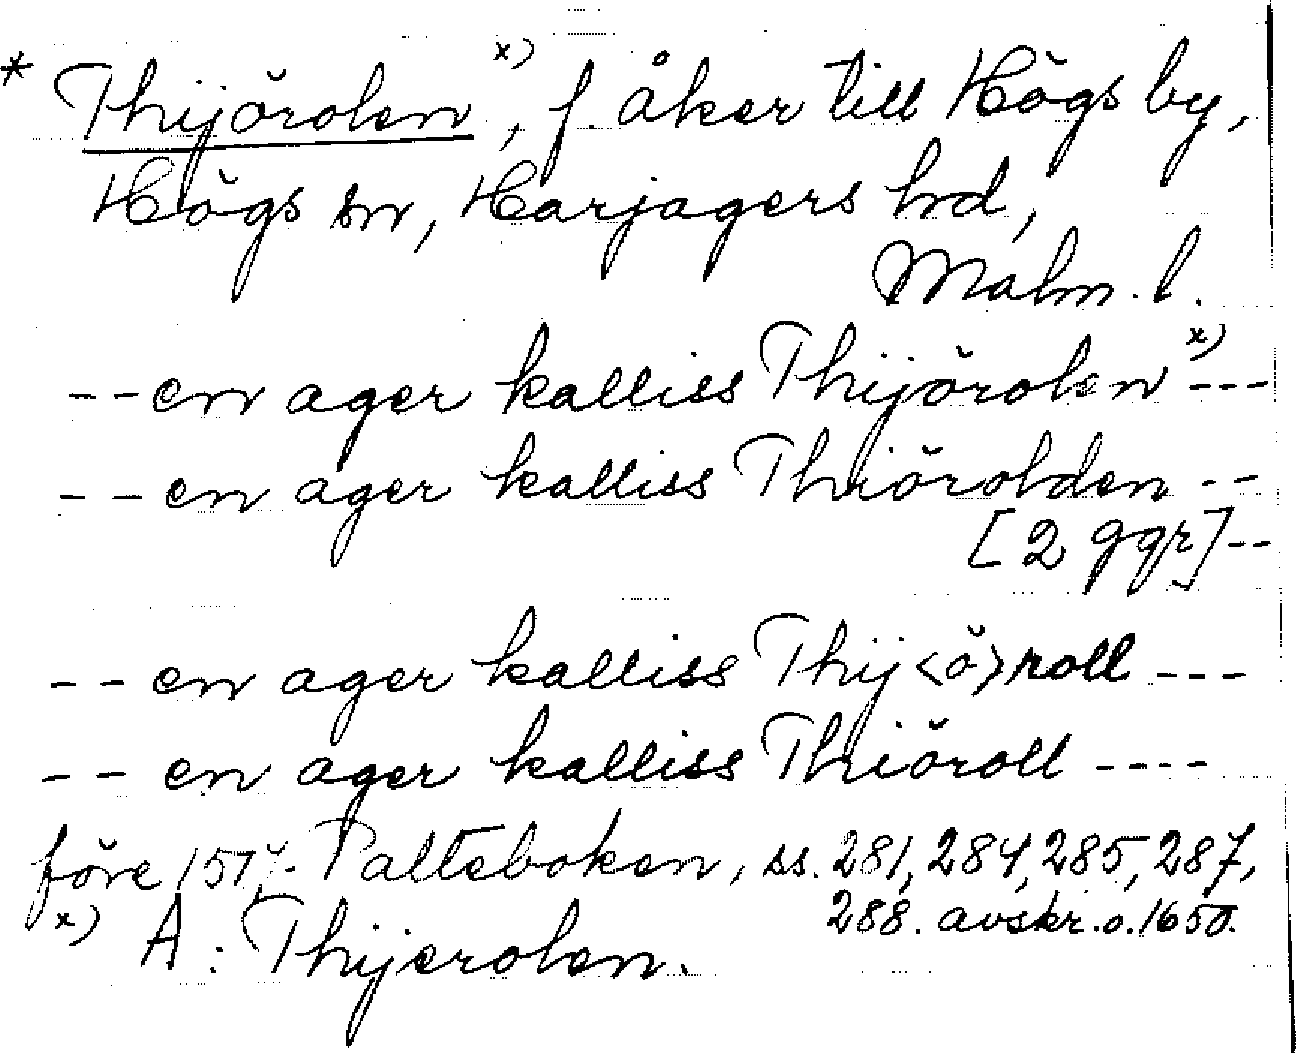 * Thijörolen x), f. åker till Högs by,
Högs sn, Harjagers hd,
Malm. l.
--en ager kalliss Thijörolen x)---
--en ager kalliss Thiörolden--
[2 ggr]--
--en ager kalliss Thij<ö>roll---
--en ager kalliss Thiöroll----
före 1517. Palteboken, ss. 281, 284, 285, 287,
288. avskr. o. 1650.
x) A: Thijerolen.